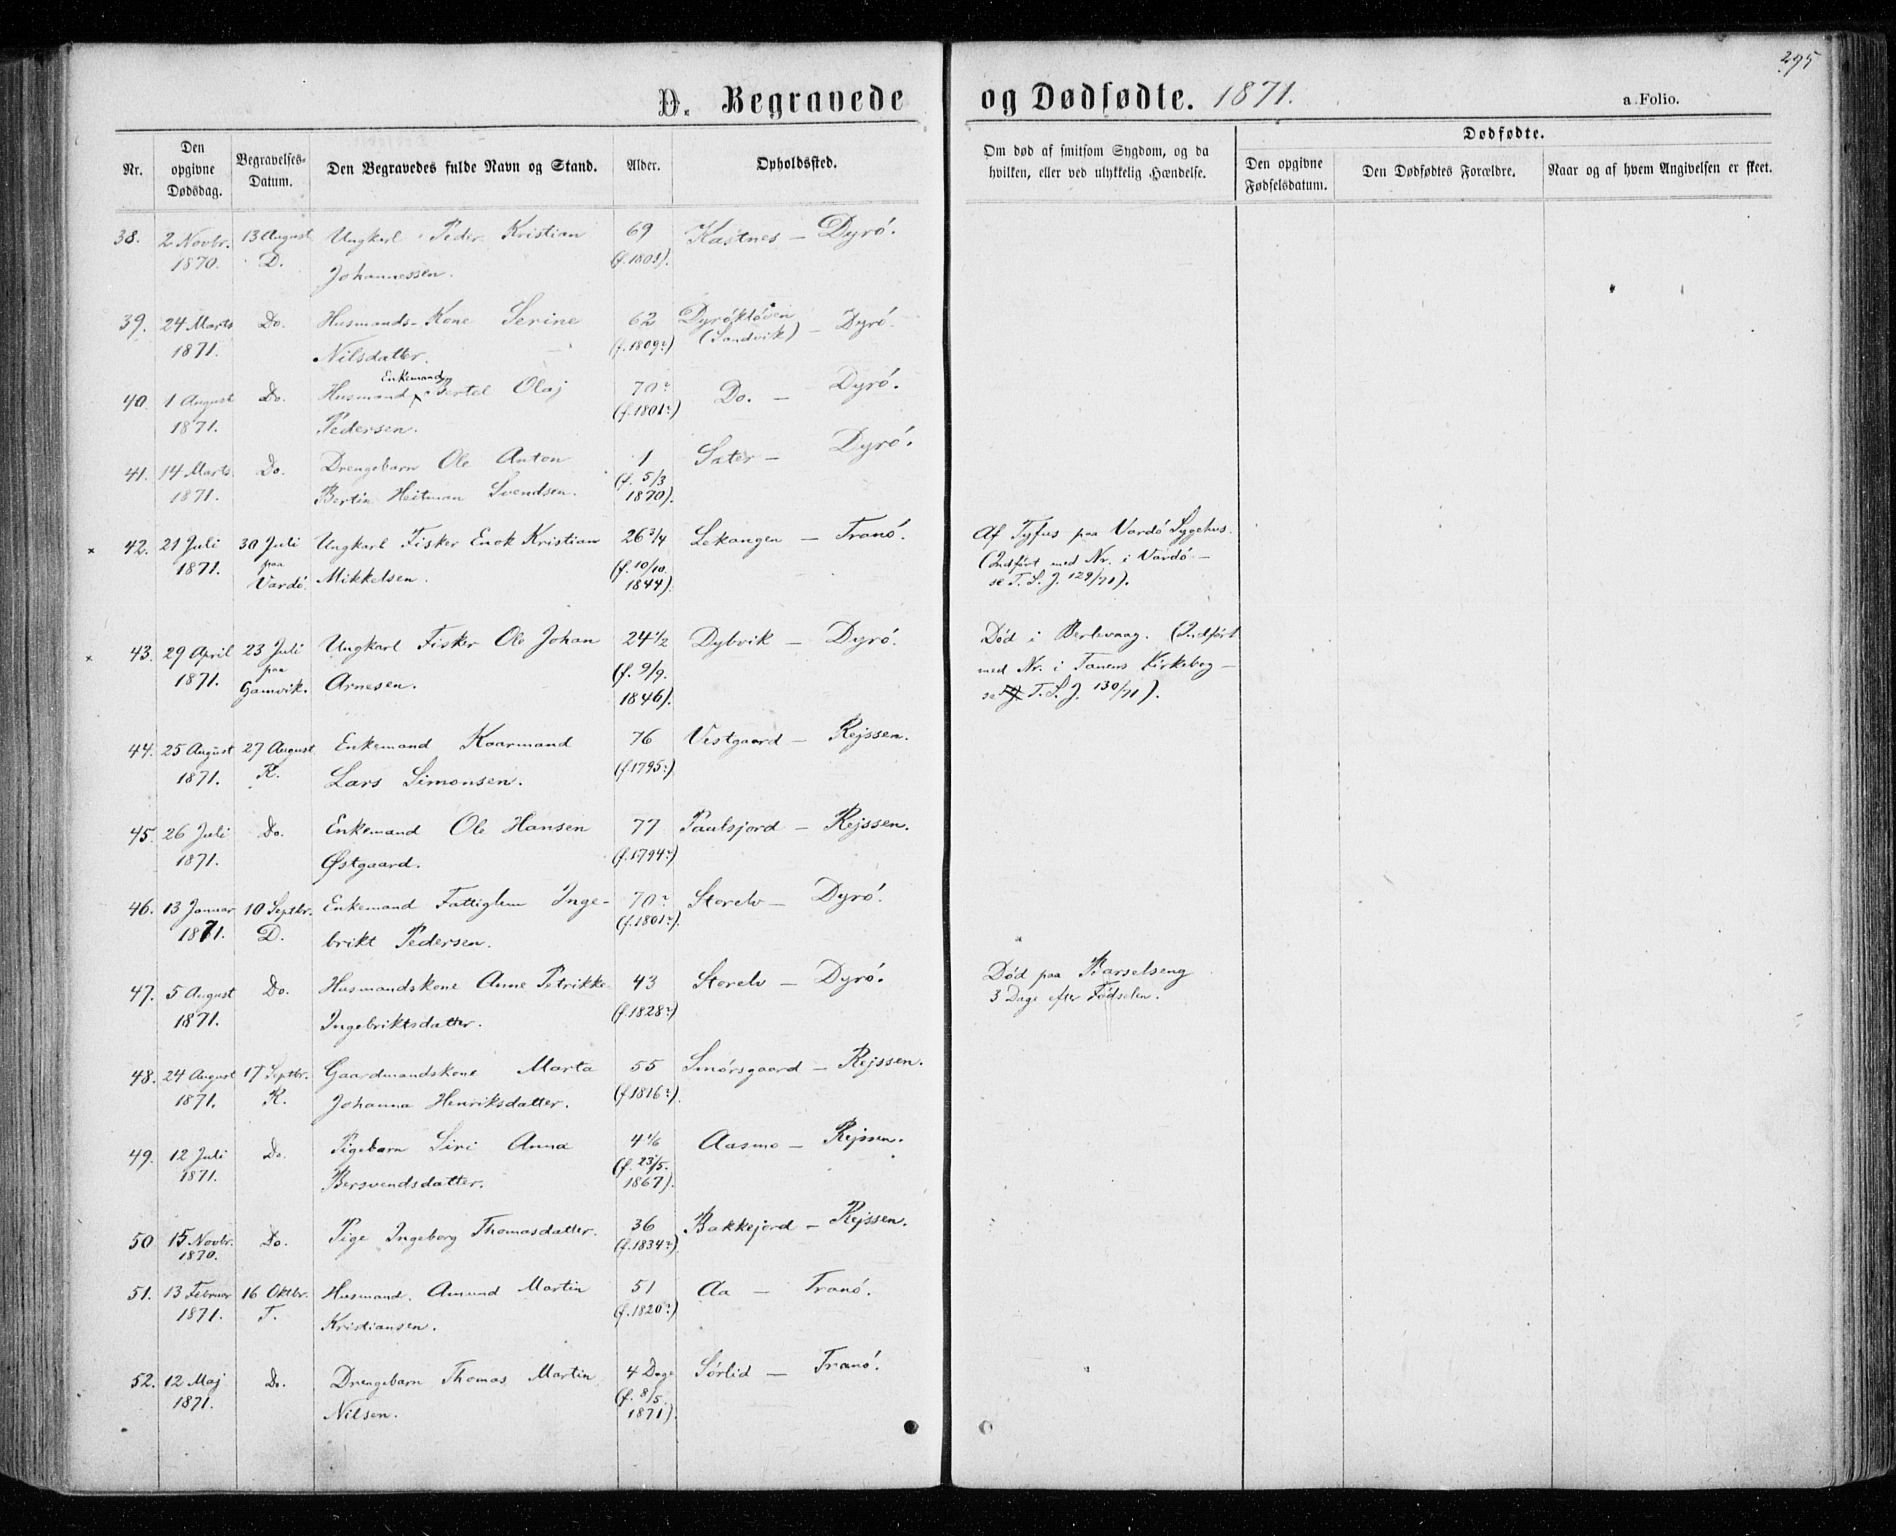 295
D. Begravede og Dødfødte. 1871.
a. Folio.
Nr.
Den opgivne Dødsdag.
Begravelses-Datum.
Den Begravedes fulde Navn og Stand.
Alder.
Opholdssted.
Om død af smitsom Sygdom, og da hvilken, eller ved ulykkelig Hændelse.
Dødfødte.
Den opgivne Fødselsdatum.
Den Dødfødtes Forældre.
Naar og af hvem Angivelsen er skeet.
38. 2 Novbr. 13 August Ungkarl Peder Kristian 69 Kastnes – Dyrö.
1870. D. Johannessen. (f. 1801).
39. 24 Marts Do. Husmands-Kone Serine 62 Dyröklöven – Dyrö.
1871. Nilsdatter. (f. 1809?) (Sandvik)
Enkemand
40. 1 August Do. Husmand Bertel Olaj 70? Do. – Dyrö.
1871. Pedersen. (f. 1801?)
41. 14 Marts Do. Drengebarn Ole Anton 1 Sæter – Dyrö.
1871. Bertin Heitman Svendsen. (f. 5/3 1870).
× 42. 21 Juli 30 Juli Ungkarl Fisker Enok Kristian 26 3/4 Lekangen – Tranö. Af Tyfus paa Vardö Sygehus.
1871. paa Vardö. Mikkelsen. (f. 10/10. 1844). (Indfört med Nr. i Vardö –
se T. S. J. 129/71).
× 43. 29 April 23 Juli Ungkarl Fisker Ole Johan 24 1/2 Dybvik – Dyrö. Död i Berlevaag. (Indfört
1871. paa Gamvik. Arnesen. (f. 9/9. 1846). med Nr. i Tanens Kirkebog –
se T. S. J. 130/71).
44. 25 August 27 August Enkemand Kaarmand 76 Vestgaard – Rejssen.
1871. R. Lars Simonsen. (f. 1795?)
45. 26 Juli Do. Enkemand Ole Hansen 77 Paulsjord – Rejssen.
1871. Østgaard. (f. 1794?)
46. 13 Januar 10 Septbr. Enkemand Fattiglem Inge- 70? Storelv – Dyrö.
1871. D. brikt Pedersen. (f. 1801?).
47. 5 August Do. Husmandskone Anne Petrikke 43 Storelv – Dyrö. Död paa Barselseng
1871. Ingebriktsdatter. (f. 1828?) 3 Dage efter Födselen.
48. 24 August 17 Septbr. Gaardmandskone Marta 55 Smörsgaard – Rejssen.
1871. R. Johanna Henriksdatter. (f. 1816?).
49. 12 Juli Do. Pigebarn Siri Anna 4 1/6 Aasmo – Rejssen.
1871. Bersvendsdatter. (f. 23/5. 1867).
50 15 Novbr. Do. Pige Ingeborg Thomasdatter. 36 Bakkejord – Rejssen.
1870. (f. 1834?)
51. 13 Februar 16 Oktbr. Husmand Amund Martin 51 Aa – Tranö.
1871. T. Kristiansen. (f. 1820?)
52. 12 Maj Do. Drengebarn Thomas Martin 4 Dage Sörlid – Tranö.
1871. Nilsen. (f. 8/5. 1871).